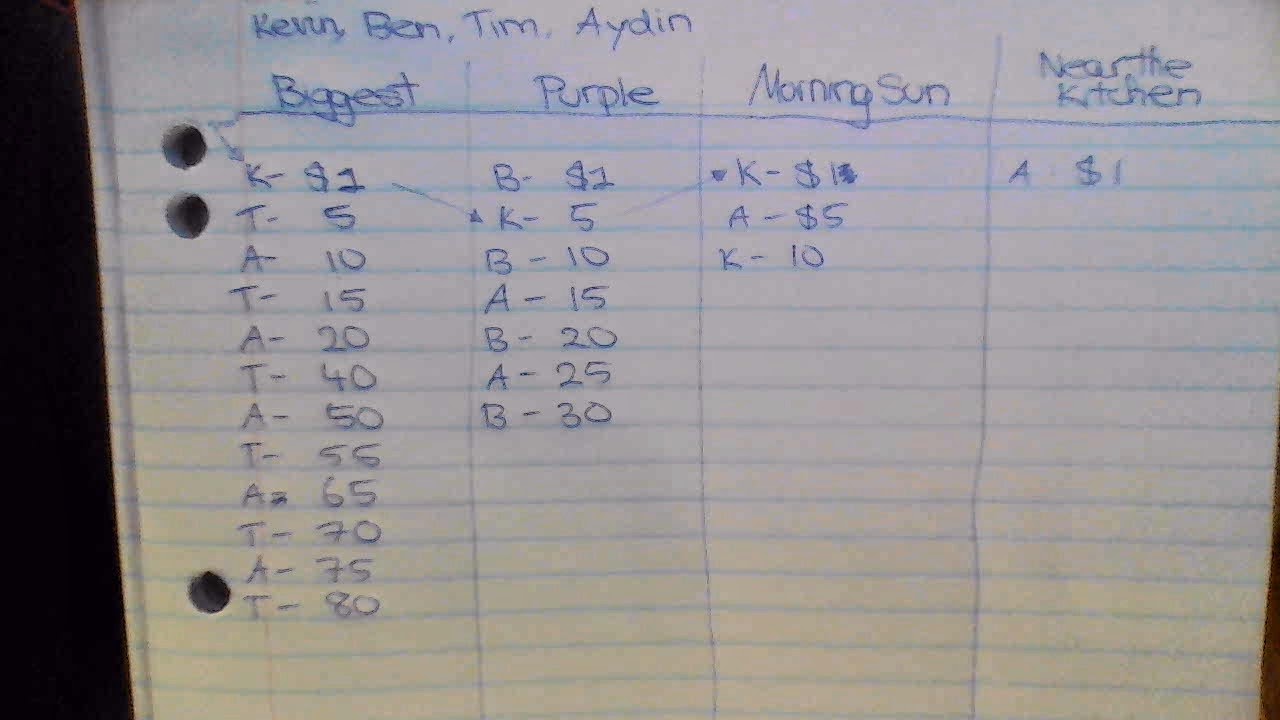 Kevin, Ben, Tim, Aydin
Biggest Purple Morning Sun Near the Kitchen
K- $1 B- $1 K- $1 A $1
T- 5 K- 5 A - $5
A- 10 B - 10 K- 10
T- 15 A - 15
A- 20 B - 20
T- 40 A - 25
A- 50 B - 30
T- 55
A- 65
T- 70
A- 75
T- 80